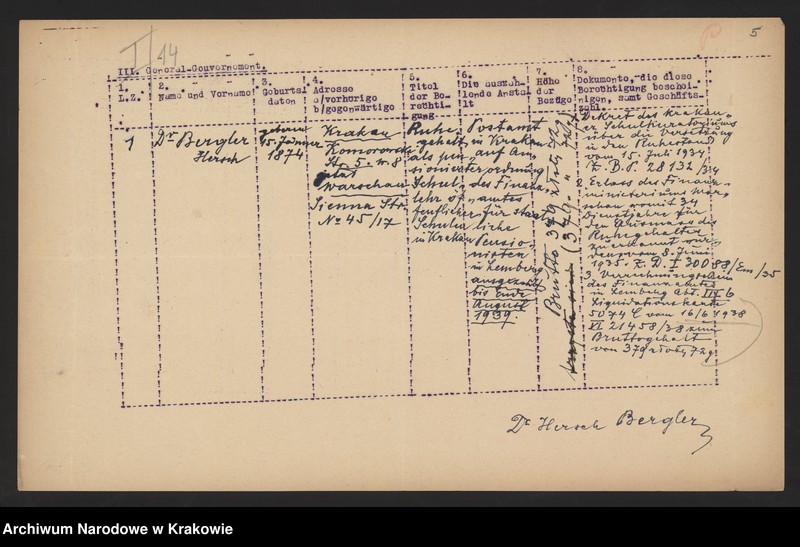 I/14
5
III. General-Gouvernement.
1.
L.Z.
2.
Name und Vorname
3.
Geburts
daten
4.
Adresse
a/vorherige
b/gegenwärtige
5.
Titel
der Be-
rechti-
gung
6.
Die auszah-
lende Anstal
lt
7.
Höhe
der
Bezüge
8.
Dokumente, die diese
Berechtigung beschei-
nigen, samt Geschäfts-
zahl.
1
Dr Bergler
Hersch
geboren
15. Jänner
1874
Krakau
Komorowski
Str. 5. w. 8
jetzt
Warschau
Sienna Str.
No 45/17
Ruhe-
gehalt
als pen-
sionierter
Schul-
lehr
öf-
fentlicher
Schulen
in Krakau
Postamt
in Krakau
auf An-
ordnung
des Finanz-
amtes
für Staat-
liche
Pensio-
nisten
in Lemberg
ausgezahlt
bis Ende
August
1939.
Brutto 379 złoty 72 g
1. Dekret des Krakau-
er Schulkuratoriums
über die Versetzung
in den Ruhestand
vom 15. Juli 1934
Z. B. P. 28132/34
2. Erlass des Finanz-
ministeriums War-
schau womit 34
Dienstjahre für
den Ausmass des
Ruhegehaltes
zuerkannt wur-
den vom 8. Juni
1935. Z. D. I 30088/Em/35
3. Verrechnungs
des Finanzamtes
in Lemberg Abt. III 6
Liquidationskarte
5074 L vom 16/6 1938
XI 21458/38 zum
Bruttogehalt
von 379 złoty 72 g
Dr Hersch Bergler
Archiwum Narodowe w Krakowie